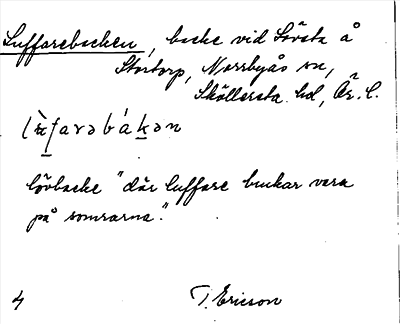 Luffarebacken, backe vid Sörsta å
Stortorp, Norrbyås sn,
Sköllersta hd, Ör. l.
lövbacke "där luffare brukar vara
på somrarna."
4 T. Ericson